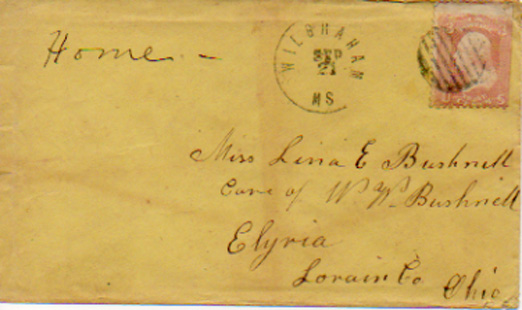 Home. -
WILBRAHAM
SEP
21
MS
Miss Lina E Bushnell
Care of W. W. Bushnell
Elyria
Lorain Co Ohio